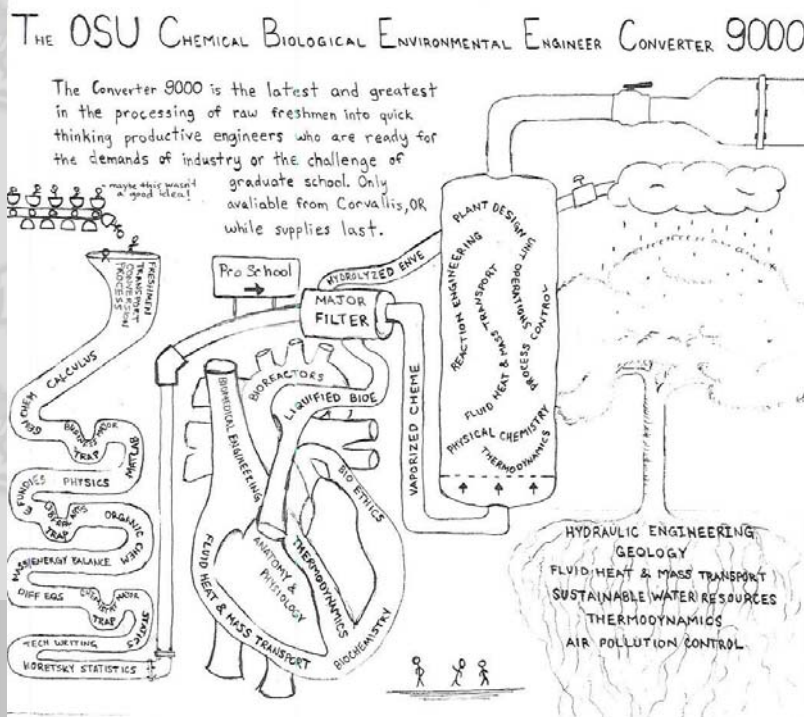 THE OSU CHEMICAL BIOLOGICAL ENVIRONMENTAL ENGINEER CONVERTER 9000
The Converter 9000 is the latest and greatest
in the processing of raw freshmen into quick
thinking productive engineers who are ready for
the demands of industry or the challenge of
graduate school. Only
avaliable from Corvallis, OR
while supplies last.
maybe this wasn't
a good idea!
FRESHMEN
TRANSPORT
CONVERSION
PROCESS
CALCULUS
CHEM
BUSINESS MAJOR
TRAP
MATLAB
PHYSICS
E FUNDIES
TRAP
ORGANIC CHEM
MASS/ENERGY BALANCE
DIFF EQS
CHEMISTRY MAJOR
TRAP
STATICS
TECH WRITING
KORETSKY STATISTICS
Pro School
MAJOR
FILTER
HYDROLYZED ENVE
LIQUIFIED BIOE
VAPORIZED CHEME
BIOREACTORS
BIOMEDICAL ENGINEERING
BIO ETHICS
ANATOMY &
PHYSIOLOGY
THERMODYNAMICS
FLUID HEAT & MASS TRANSPORT
BIOCHEMISTRY
PLANT DESIGN
UNIT OPERATIONS
REACTION ENGINEERING
PROCESS CONTROL
FLUID HEAT & MASS TRANSPORT
PHYSICAL CHEMISTRY
THERMODYNAMICS
HYDRAULIC ENGINEERING
GEOLOGY
FLUID HEAT & MASS TRANSPORT
SUSTAINABLE WATER RESOURCES
THERMODYNAMICS
AIR POLLUTION CONTROL